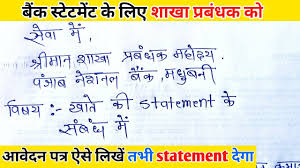 बैंक स्टेटमेंट के लिए शाखा प्रबंधक को
सेवा में,
श्रीमान शाखा प्रबंधक महोदय
पंजाब नेशनल बैंक, मधुबनी
विषय:- खाते की statement के
संबंध में
आवेदन पत्र ऐसे लिखें तभी statement देगा